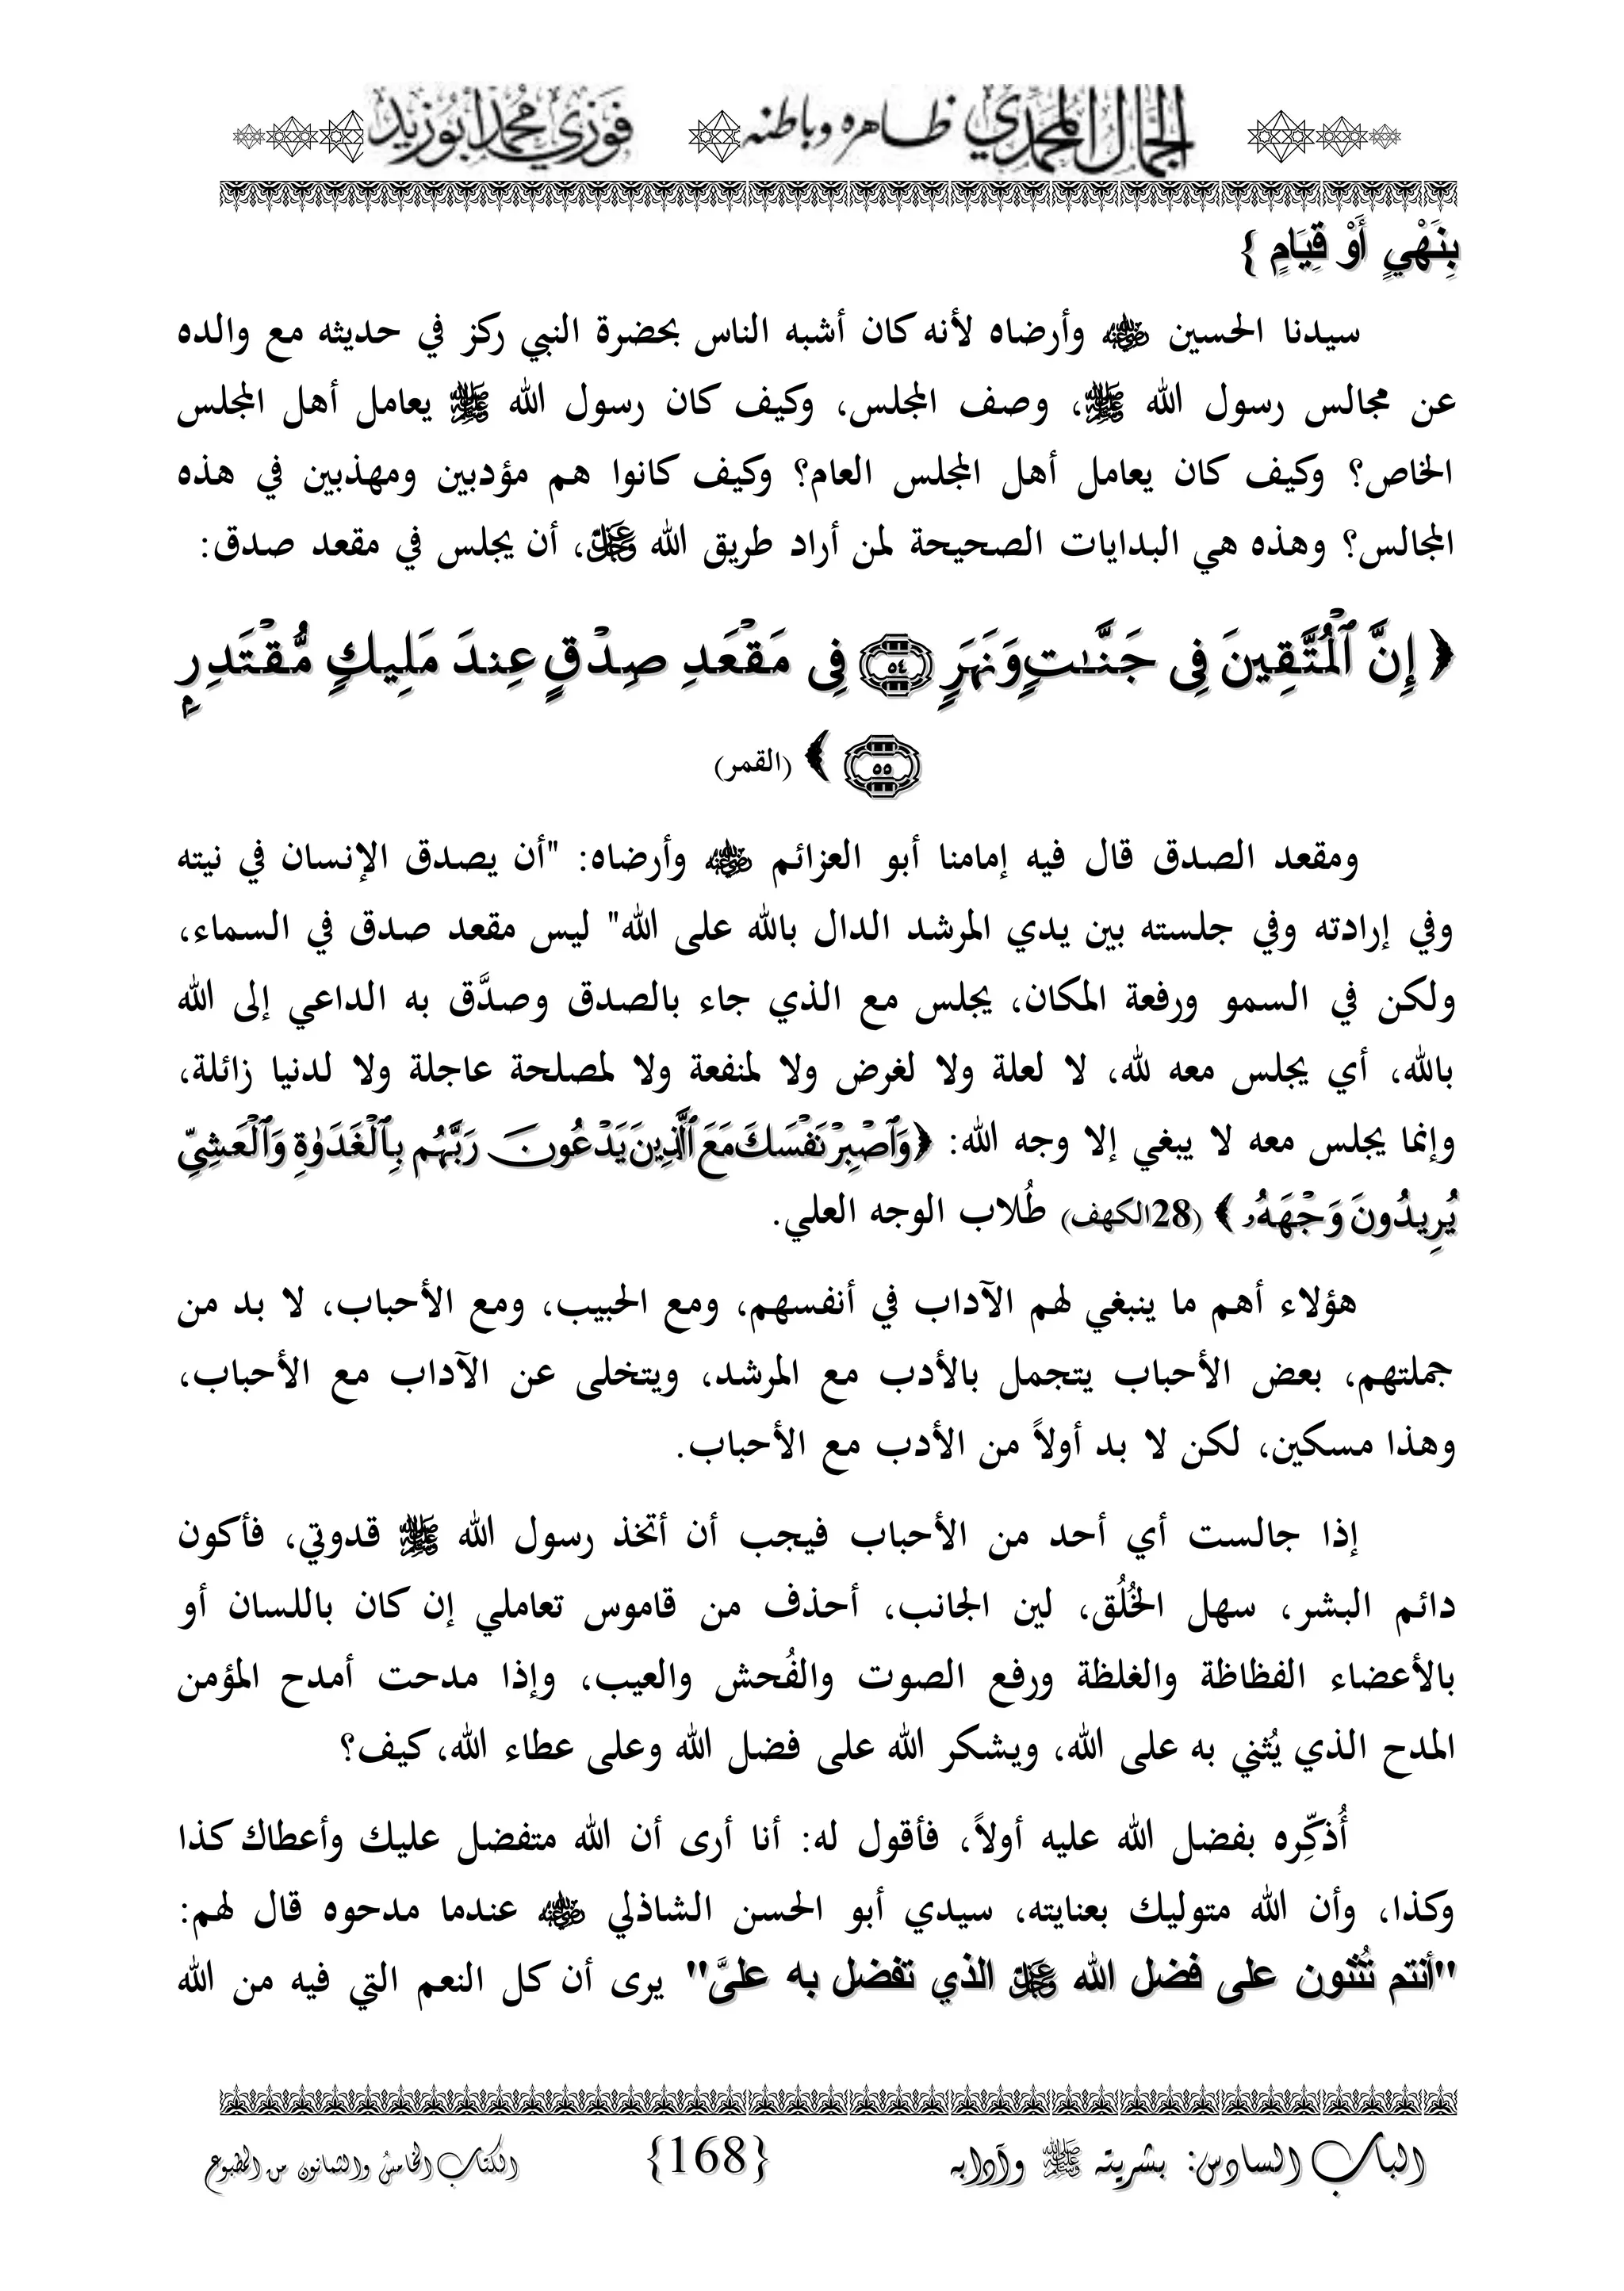 الجمال المحمدي ظاهره وباطنه فوزي محمد أبوزيد
بِنَهْيٍ أَوْ قِيَامٍ }
سيدنا الحسين ﵁ وأرضاه لأنه كان أشبه الناس بحضرة النبي ركز في حديثه مع والده
عن مجالس رسول الله ﷺ، وصف المجلس، وكيف كان رسول الله ﷺ يعامل أهل المجلس
الخاص؟ وكيف كان يعامل أهل المجلس العام؟ وكيف كانوا هم مؤدبين ومهذبين في هذه
المجالس؟ وهذه هي البدايات الصحيحة لمن أراد طريق الله ﷿، أن يجلس في مقعد صدق:
﴿ إِنَّ ٱلْمُتَّقِينَ فِى جَنَّـٰتٍ وَنَهَرٍ ٥٤ فِى مَقْعَدِ صِدْقٍ عِندَ مَلِيكٍ مُّقْتَدِرٍۭ
٥٥ ﴾ (القمر)
ومقعد الصدق قال فيه إمامنا أبو العزائم ﵁ وأرضاه: "أن يصدق الإنسان في نيته
وفي إرادته وفي جلسته بين يدي المرشد الدال بالله على الله" ليس مقعد صدق في السماء،
ولكن في السمو ورفعة المكان، يجلس مع الذي جاء بالصدق وصدَّق به الداعي إلى الله
بالله، أي يجلس معه لله، لا لعلة ولا لغرض ولا لمنفعة ولا لمصلحة عاجلة ولا لدنيا زائلة،
وإنما يجلس معه لا يبغي إلا وجه الله: ﴿ وَٱصْبِرْ نَفْسَكَ مَعَ ٱلَّذِينَ يَدْعُونَ رَبَّهُم بِٱلْغَدَوٰةِ وَٱلْعَشِىِّ
يُرِيدُونَ وَجْهَهُۥ ﴾ (28الكهف) طُلاب الوجه العلي.
هؤلاء أهم ما ينبغي لهم الآداب في أنفسهم، ومع الحبيب، ومع الأحباب، لا بد من
جملتهم، بعض الأحباب يتجمل بالأدب مع المرشد، ويتخلى عن الآداب مع الأحباب،
وهذا مسكين، لكن لا بد أولاً من الأدب مع الأحباب.
إذا جالست أي أحد من الأحباب فيجب أن أتخذ رسول الله ﷺ قدوتي، فأكون
دائم البشر، سهل الخُلُق، لين الجانب، أحذف من قاموس تعاملي إن كان باللسان أو
بالأعضاء الفظاظة والغلظة ورفع الصوت والفُحش والعيب، وإذا مدحت أمدح المؤمن
المدح الذي يُثني به على الله، ويشكر الله على فضل الله وعلى عطاء الله، كيف؟
أُذكِّره بفضل الله عليه أولاً، فأقول له: أنا أرى أن الله متفضل عليك وأعطاك كذا
وكذا، وأن الله متوليك بعنايته، سيدي أبو الحسن الشاذلي ﵁ عندما مدحوه قال لهم:
"أنتم تُثنون على فضل الله ﷿ الذي تفضل به علىَّ" يرى أن كل النعم التي فيه من الله
الباب السادس: بشريته ﷺ وآدابه {168} الكتاب الخامس والثمانون من المطبوع